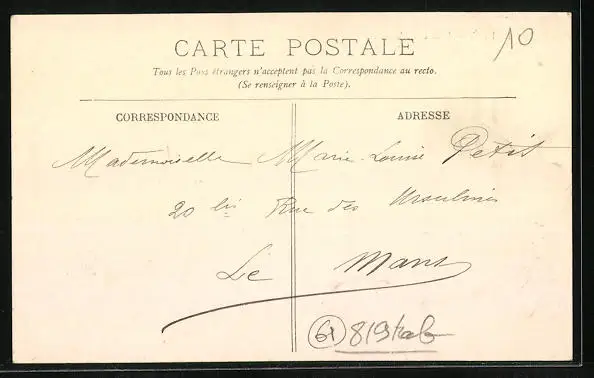 CARTE POSTALE
10
Tous les Pays étrangers n'acceptent pas la Correspondance au recto.
(Se renseigner à la Poste).
CORRESPONDANCE
ADRESSE
Mademoiselle Marie-Louise Petit
20 bis Rue des Ursulines
Le Mans
61